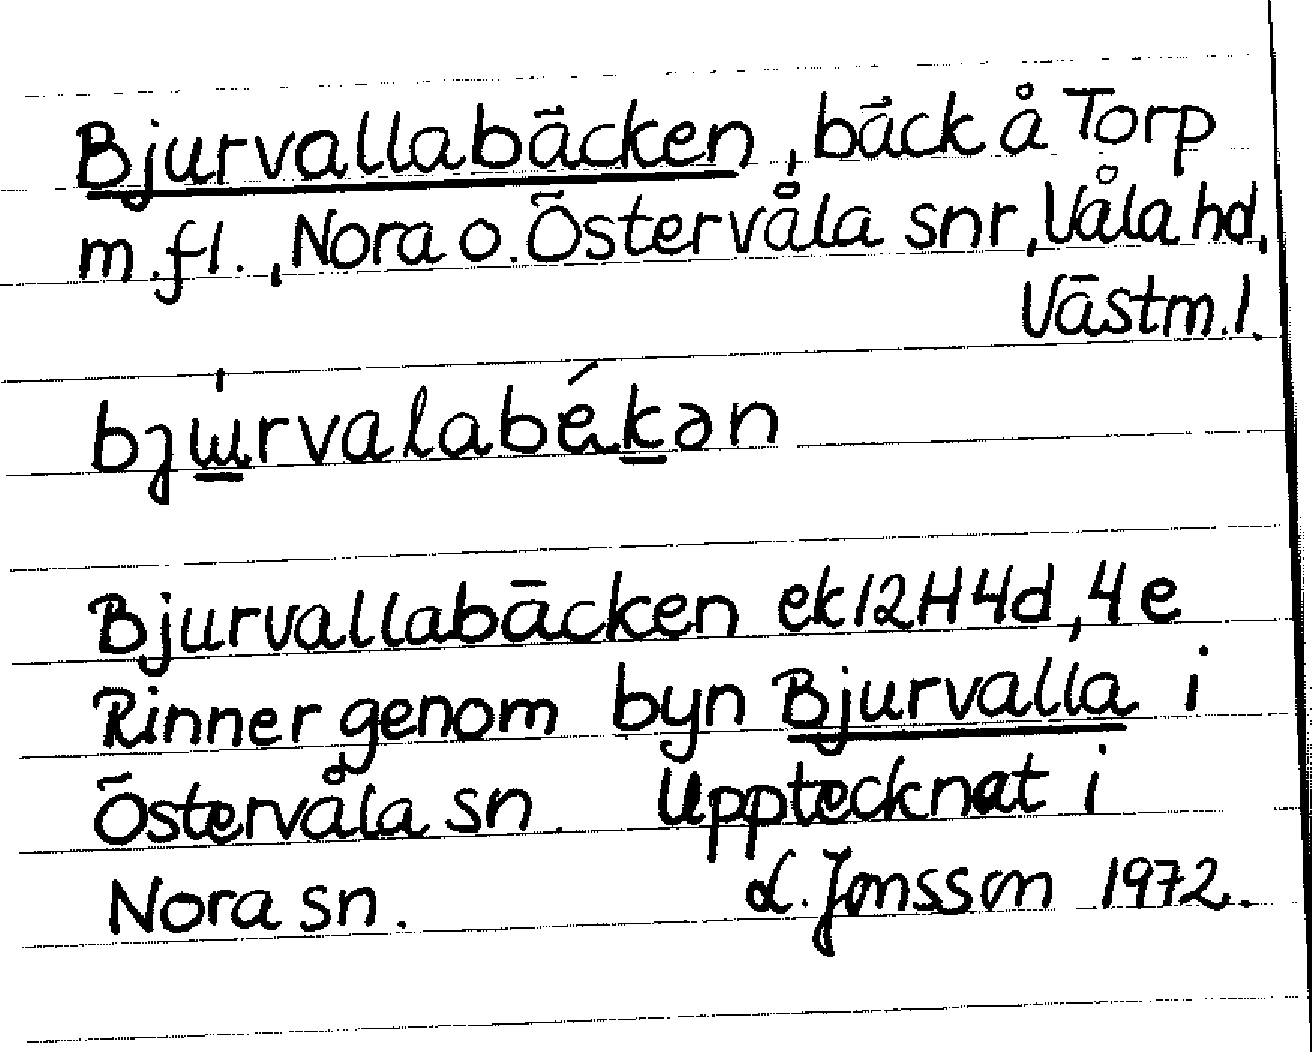 Bjurvallabäcken, bäck å Torp
m.fl., Nora o. Östervåla snr, Våla hd,
Västm.l.
Bjurvallabäcken ek 12H4d, 4e
Rinner genom byn Bjurvalla i
Östervåla sn. Upptecknat i
Nora sn. L. Jonsson 1972.